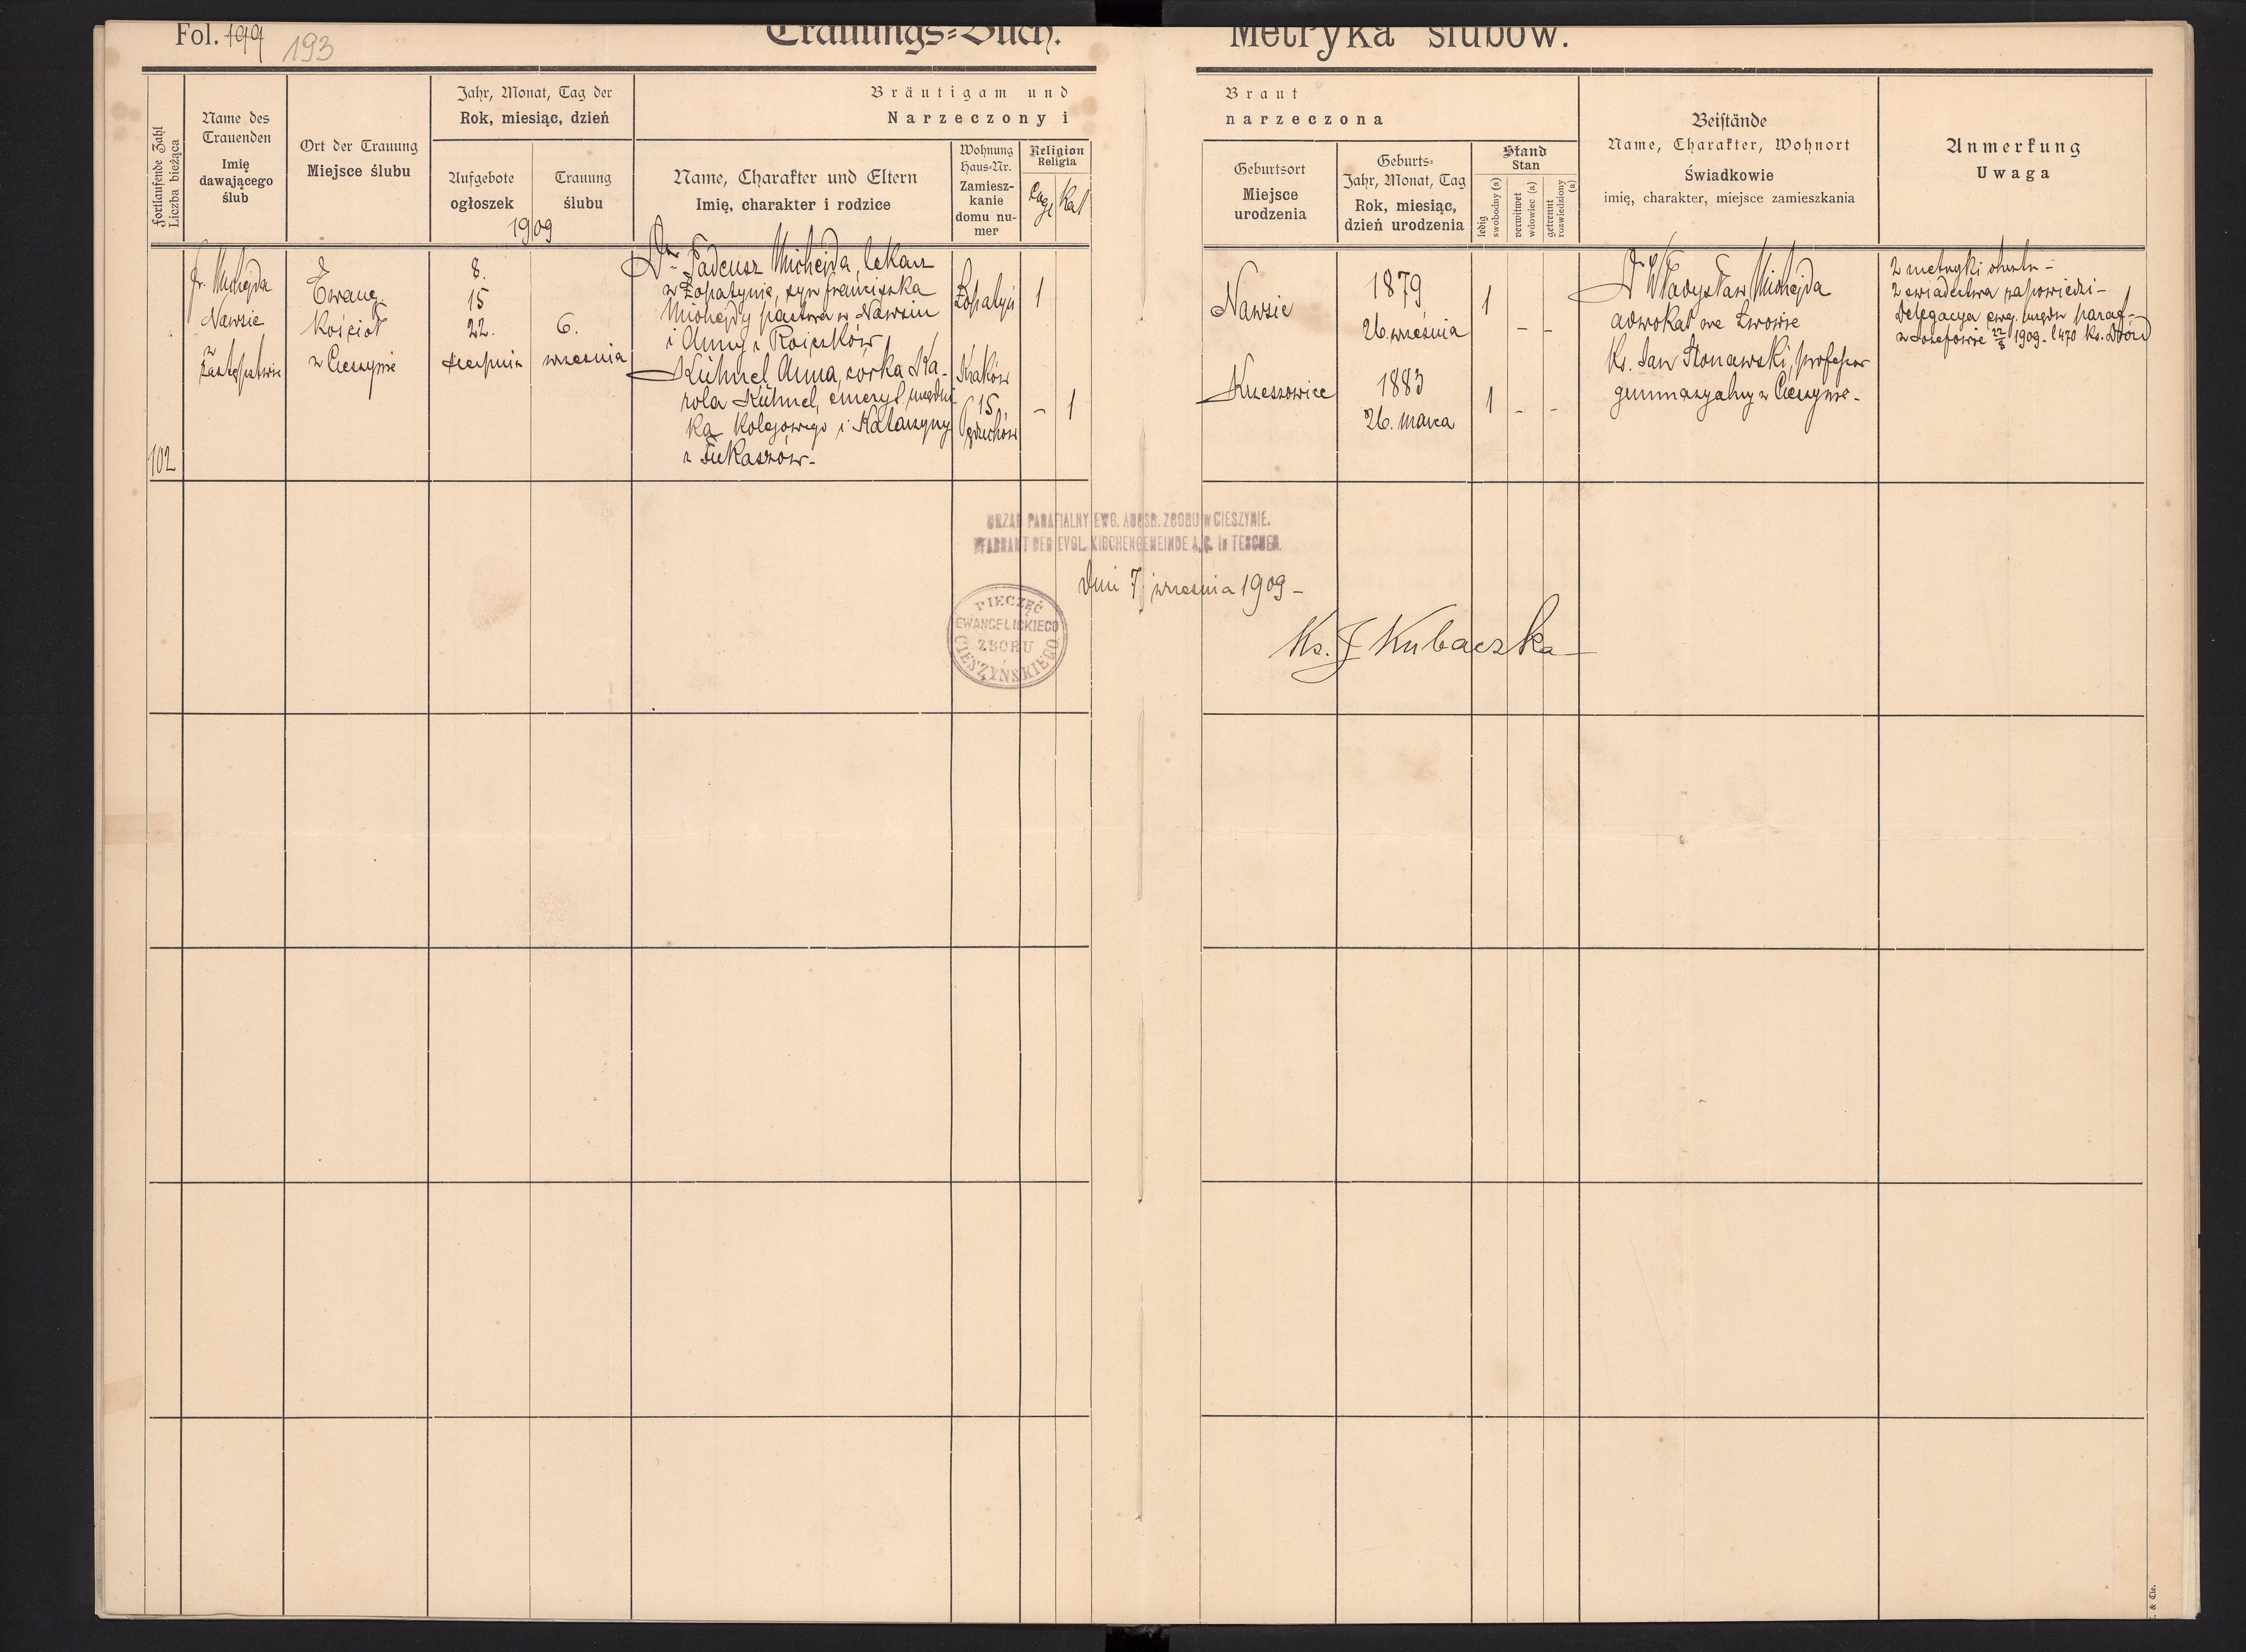 Fol. 199 193
Trauungs=Buch.
Metryka ślubów.
Fortlaufende Zahl
Liczba bieżąca
Name des
Trauenden
Imię
dawającego
ślub
Ort der Trauung
Miejsce ślubu
Jahr, Monat, Tag der
Rok, miesiąc, dzień
Aufgebote
ogłoszek
Trauung
ślubu
1909
Bräutigam und
Narzeczony i
Name, Charakter und Eltern
Imię, charakter i rodzice
Wohnung
Haus=Nr.
Zamiesz-
kanie
domu nu-
mer
Religion
Religia
Ewg.
Kat
Braut
narzeczona
Geburtsort
Miejsce
urodzenia
Geburts=
Jahr, Monat, Tag
Rok, miesiąc,
dzień urodzenia
Stand
Stan
ledig
swobodny (a)
verwitwet
wdowiec (a)
getrennt
rozwiedziony (a)
Beistände
Name, Charakter, Wohnort
Świadkowie
imię, charakter, miejsce zamieszkania
Anmerkung
Uwaga
102
Fr. Michejda
Nawsie
w
zastępstwie
Ewang.
Kościół
w Cieszynie
8.
15
22.
sierpnia
6.
września
Dr Tadeusz Michejda, lekarz
w Łopatynie, syn Franciszka
Michejdy pastora w Nawsiu
i Anny z Roiczków
Kühnel Anna, córka Ka-
rola Kühnel, emeryt. urzędni
ka kolejowego i Katarzyny
z Łukaszów-
Łopatyn
1
Kraków
15
- 1
Nawsie
1879
26. września
1 - -
Krzeszowice
1883
26. marca
1 - -
Dr Władysław Michejda
adwokat we Lwowie
Ks. Jan Stonawski, profesor
gimnazyalny w Cieszynie-
2 metryki chrztu-
2 świadectwa zapowiedzi-
Delegacya ewg. urzędu paraf-
w Józefowie 22/8 1909- l 470 Ks.
URZĄD PARAFIALNY EWG. AUGSB. ZBORU w CIESZYNIE.
PFARRAMT DER EVGL. KIRCHENGEMEINDE A. C. in TESCHEN.
Dnia 7 września 1909-
PIECZĘĆ
EWANGELICKIEGO
ZBORU
CIESZYŃSKIEGO
Ks. J Kubaczka
. & Cie.